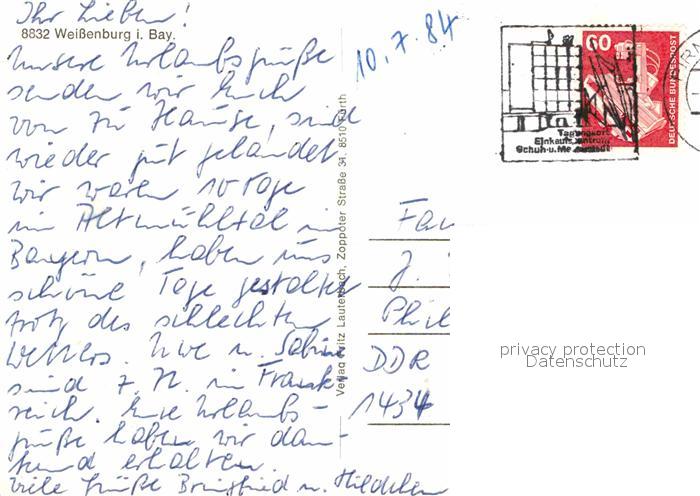 Ihr Lieben!
8832 Weißenburg i. Bay.
Unsere Urlaubsgrüße
senden wir Euch
von zu Hause, sind
wieder gut gelandet
wir waren 10 Tage
im Altmühltal in
Bayern, haben uns
schöne Tage gestaltet
trotz des schlechten
Wetters. Uwe u. Sabine
sind z. Zt. in Frank-
reich. Eure Urlaubs-
grüße haben wir dan-
kend erhalten.
Viele Grüße u. Hildchen
Verlag Fritz Lauterbach, Zoppoter Straße 31, 8510 Fürth
10.7.84
60
DEUTSCHE BUNDESPOST
Tagungsort
Einkaufszentrum
Schuh- u.
Fam
J.
Phil
DDR
1434
privacy protection
Datenschutz